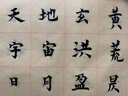 天地玄黃
宇宙洪荒
日月盈昃